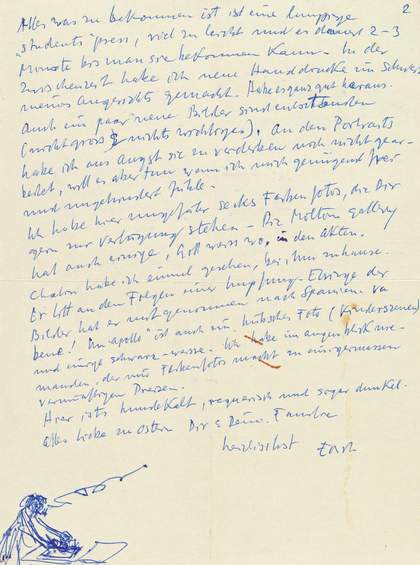 2
Alles was zu bekommen ist ist eine lumpige
"students" press, viel zu leicht und es dauert 2-3
Monate bis man sie bekommen kann. In der
Zwischenzeit habe ich neue Handdrucke im Schweiss
meines Angesichts gemacht. Habe es ganz gut heraus.
Auch ein paar neue Bilder sind entstanden
(nicht gross & nichts wichtiges). An den Portraits
habe ich aus Angst sie zu verderben noch nicht gear-
beitet, will es aber tun wann ich mich genügend frei
und ungehindert fühle.
Ich habe hier ungefähr sechs Farbenfotos, die Dir
gern zur Verfügung stehen - Die Molton gallery
hat auch einige, Gott weiss wo, in den Akten.
habe ich einmal gesehen, bei ihm zuhause.
Er litt an den Folgen einer Impfung. Einige der
Bilder hat er mitgenommen nach Spanien
Im "Apollo" ist auch ein hübsches Foto (Kinderszenen)
und einige schwarz-weisse. Ich habe im Augenblick nie-
manden, der mir Farbenfotos macht zu einigermassen
vernünftigen Preisen.
Hier ists hundekalt, regnerisch und sogar dunkel.
Alles Liebe zu Ostern Dir & Deiner Familie
herzlichst